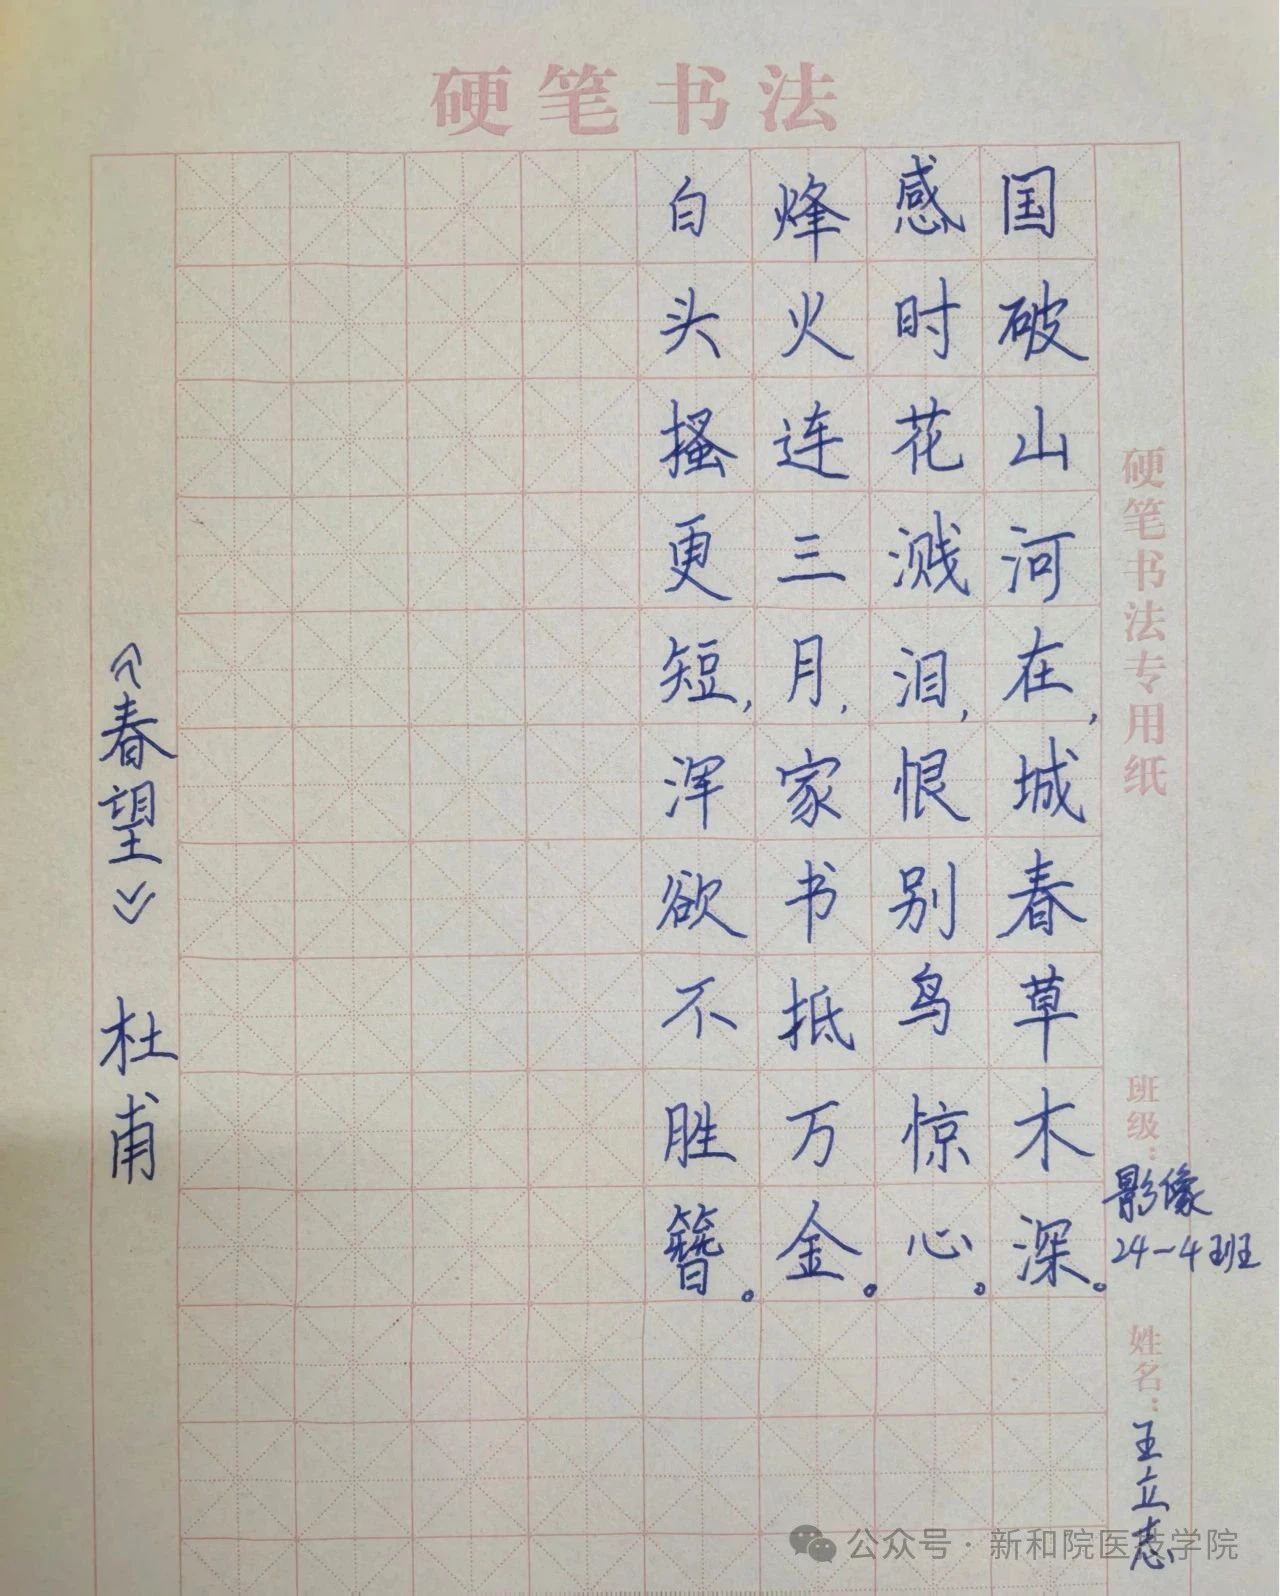 硬笔书法
国破山河在，城春草木深。
感时花溅泪，恨别鸟惊心。
烽火连三月，家书抵万金。
白头搔更短，浑欲不胜簪。
《春望》 杜甫
硬笔书法专用纸
班级：影像24-4班
姓名：王立志
公众号·新和院医技学院